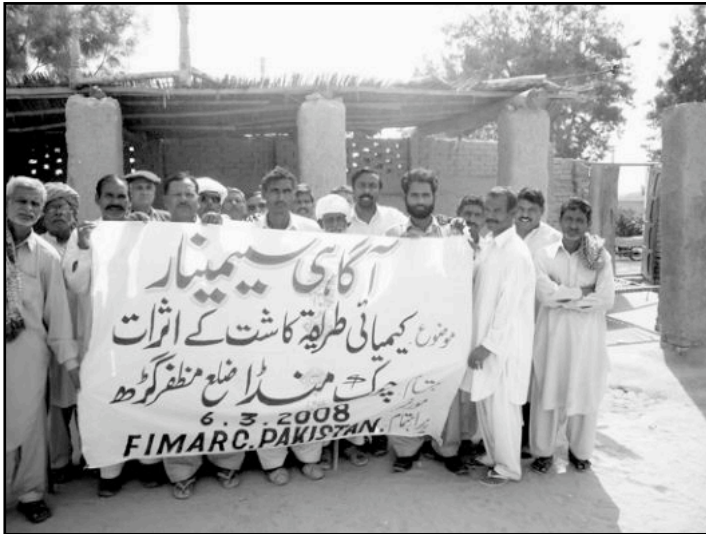 آگاہی سیمینار
موضوع۔ کیمیائی طریقۂ کاشت کے اثرات
بمقام چوک منڈا ضلع مظفر گڑھ
6.3.2008
زیر اہتمام FIMARC.PAKISTAN